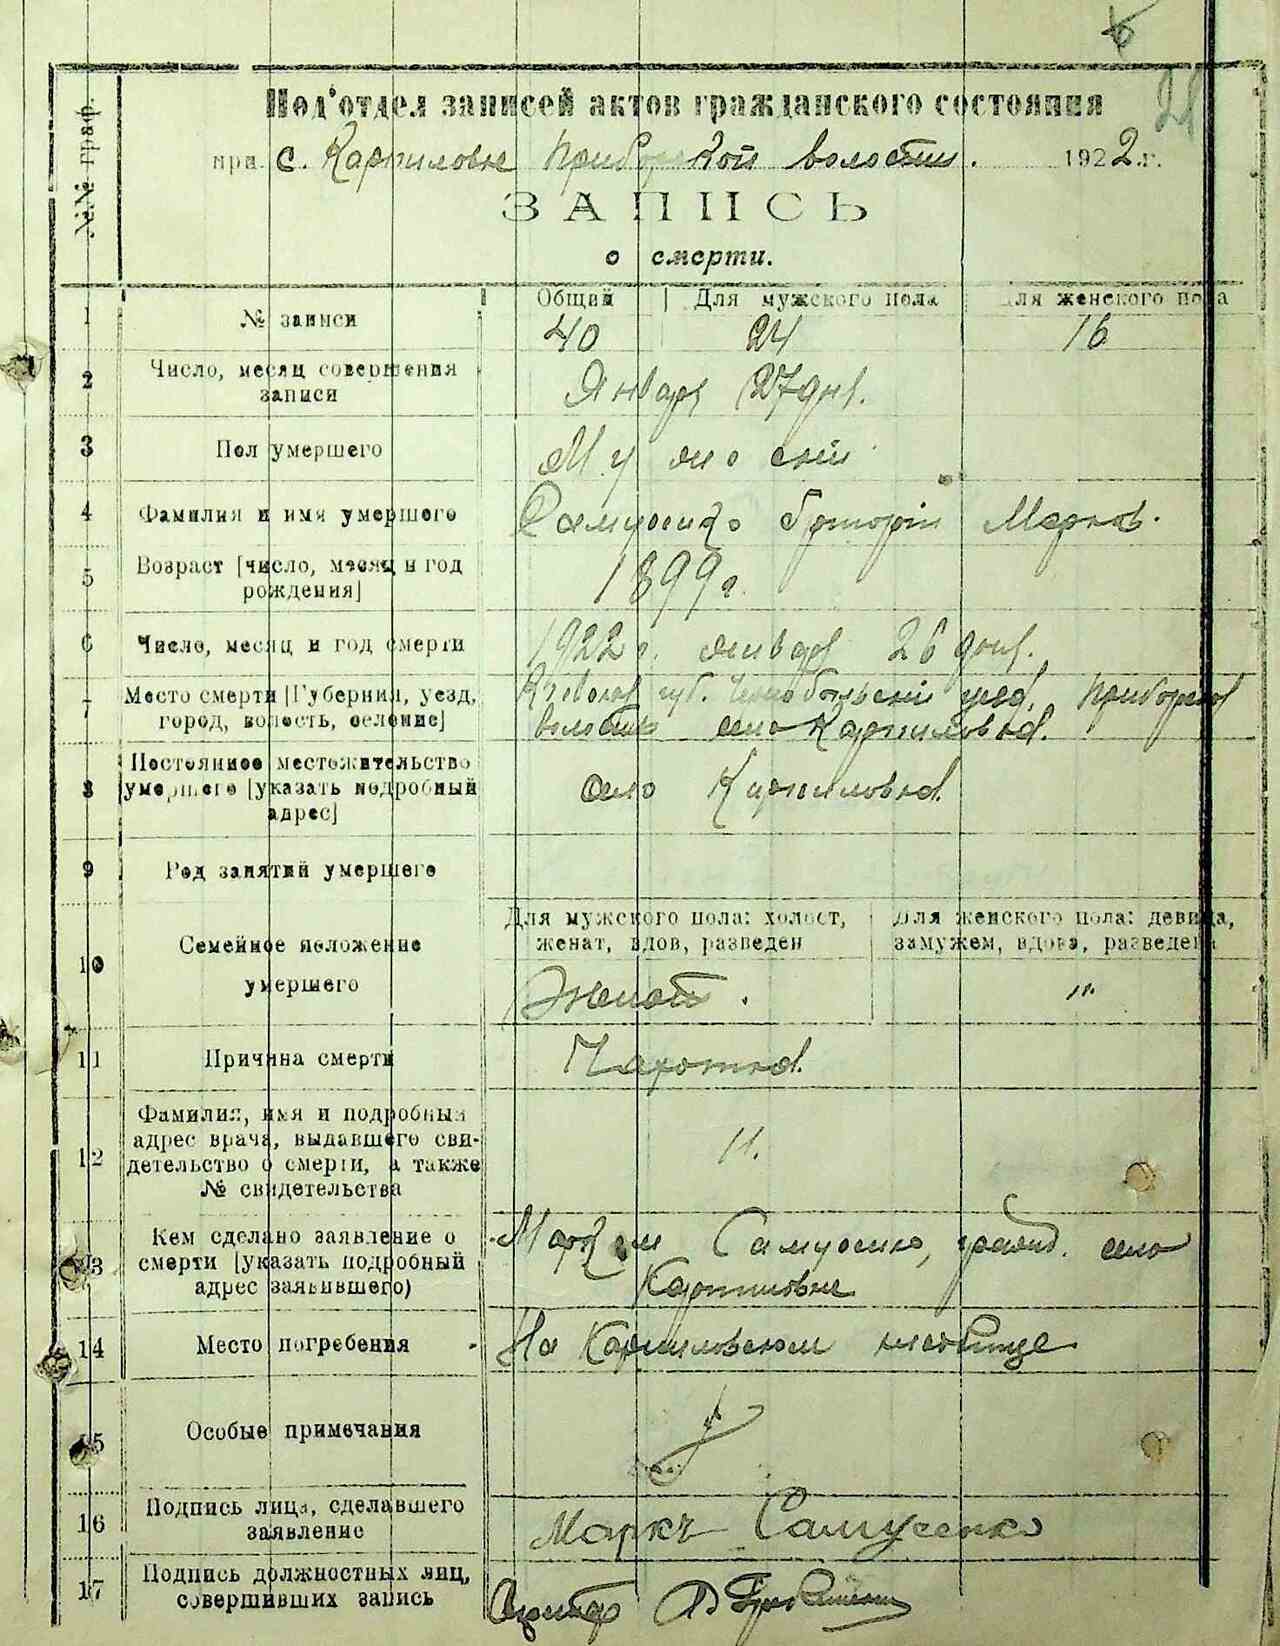 21
№№ граф.
Под'отдел записей актов гражданского состояния
при с. Карпиловке Приборской волости. 1922 г.
ЗАПИСЬ
о смерти.
1 № записи
Общий Для мужского пола Для женского пола
40 24 16
2 Число, месяц совершения
записи
Января 27 дня.
3 Пол умершего
Мужской
4 Фамилия и имя умершего
Самусенко Григорій Марков.
5 Возраст [число, месяц и год
рождения]
1899 г.
6 Число, месяц и год смерти
1922 г. января 26 дня.
7 Место смерти [Губерния, уезд,
город, волость, селение]
Киевская губ. Чернобыльский уезд. Приборская
волость село Карпиловка.
8 Постоянное местожительство
умершего [указать подробный
адрес]
село Карпиловка.
9 Род занятий умершего
10 Семейное положение
умершего
Для мужского пола: холост, Для женского пола: девица,
женат, вдов, разведен замужем, вдова, разведена
Женат. "
11 Причина смерти
Чахотка.
12 Фамилия, имя и подробный
адрес врача, выдавшего сви-
детельство о смерти, а также
№ свидетельства
".
13 Кем сделано заявление о
смерти [указать подробный
адрес заявившего)
Марком Самусенко, гражд. село
Карпиловке
14 Место погребения
На Карпиловском кладбище
15 Особые примечания
16 Подпись лица, сделавшего
заявление
Маркъ Самусенко
17 Подпись должностных лиц,
совершивших запись